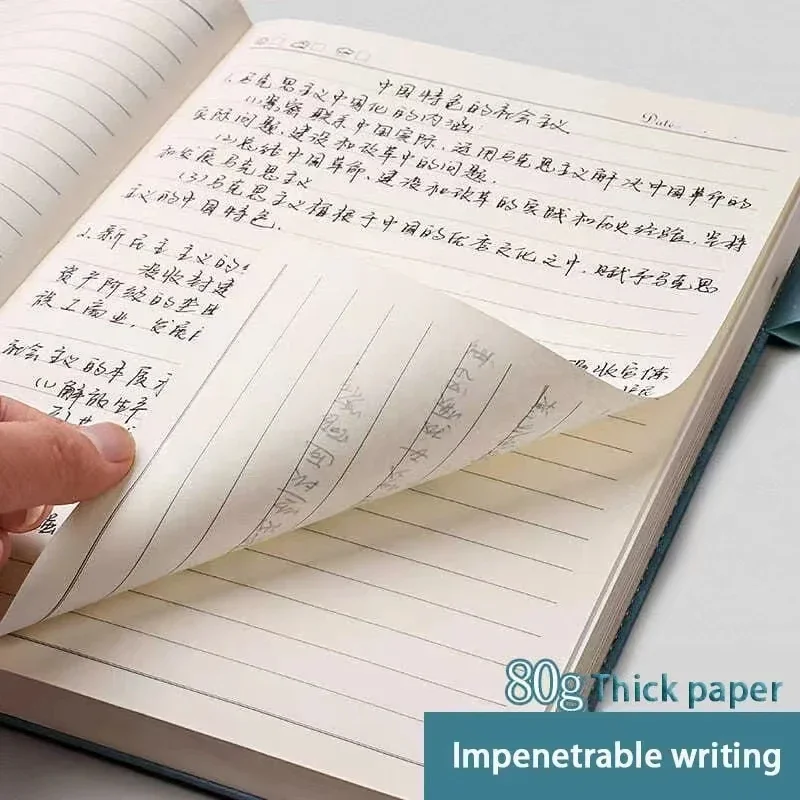 Date:
中国特色的社会主义
1.马克思主义中国化的内涵:
(1)紧密联系中国实际,运用马克思主义解决中国革命的
实际问题,建设和改革中的问题.
(2)总结中国革命、建设和改革的实践和历史经验,坚持
和发展马克思主义
(3)马克思主义植根于中国的优秀文化之中,赋予马克思
主义的中国特色.
2.新民主主义的
没收封建
资产阶级的
族工商业,发展
社会主义的本
(1)解放生
80g Thick paper
Impenetrable writing